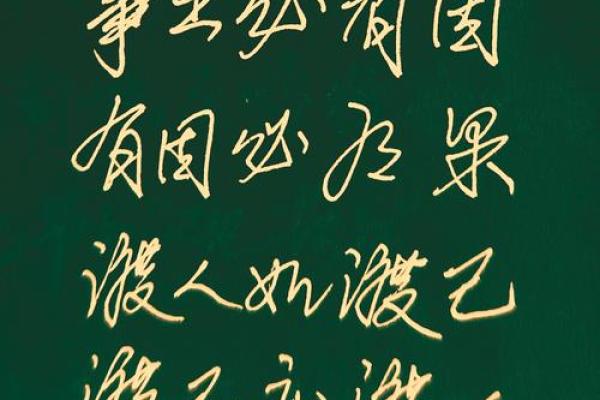 事出必有因
有因必有果
渡人如渡己
渡己亦渡人